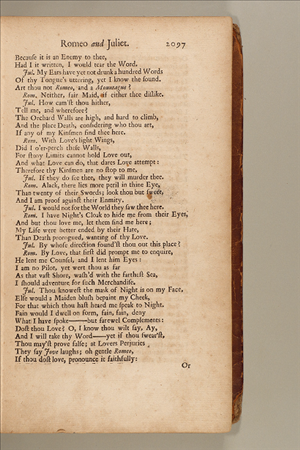 Romeo and Juliet. 2097
Because it is an Enemy to thee,
Had I it written, I would tear the Word.
Jul. My Ears have yet not drunk a hundred Words
Of thy Tongue's uttering, yet I know the sound.
Art thou not Romeo, and a Mountague?
Rom. Neither, fair Maid, if either thee dislike.
Jul. How cam'st thou hither,
Tell me, and wherefore?
The Orchard Walls are high, and hard to climb,
And the place Death, considering who thou art,
If any of my Kinsmen find thee here.
Rom. With Love's light Wings,
Did I o'er-perch these Walls,
For stony Limits cannot hold Love out,
And what Love can do, that dares Love attempt:
Therefore thy Kinsmen are no stop to me.
Jul. If they do see thee, they will murder thee.
Rom. Alack, there lies more peril in thine Eye,
Than twenty of their Swords; look thou but sweet,
And I am proof against their Enmity.
Jul. I would not for the World they saw thee here.
Rom. I have Night's Cloak to hide me from their Eyes,
And but thou love me, let them find me here;
My Life were better ended by their Hate,
Than Death prorogued, wanting of thy Love.
Jul. By whose direction found'st thou out this place?
Rom. By Love, that first did prompt me to enquire,
He lent me Counsel, and I lent him Eyes:
I am no Pilot, yet wert thou as far
As that vast Shore, wash'd with the farthest Sea,
I should adventure for such Merchandise.
Jul. Thou knowest the mask of Night is on my Face,
Else would a Maiden blush bepaint my Cheek,
For that which thou hast heard me speak to Night.
Fain would I dwell on form, fain, fain, deny
What I have spoke——but farewel Complements:
Dost thou Love? O, I know thou wilt say, Ay,
And I will take thy Word——yet if thou swear'st,
Thou may'st prove false; at Lovers Perjuries
They say Jove laughs; oh gentle Romeo,
If thou dost love, pronounce it faithfully:
Or